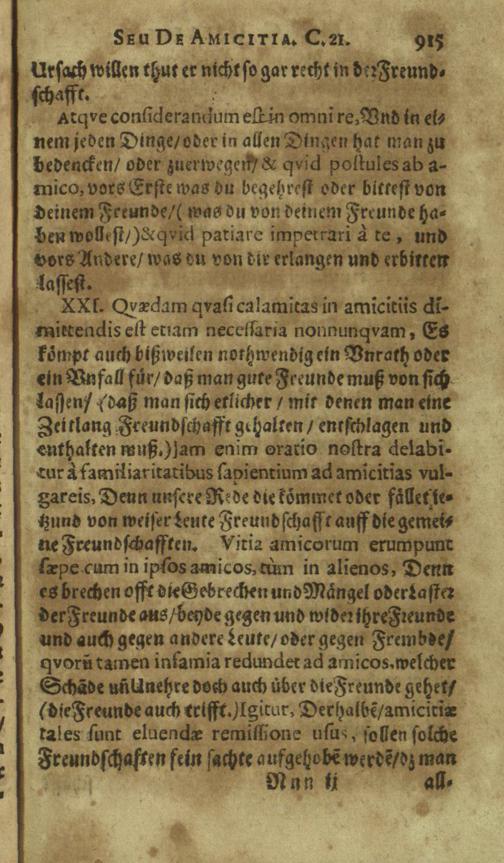 SEU DE AMICITIA. C. 21. 915
Ursach willen thut er nicht so gar recht in der Freund-
schafft.
Atqve considerandum est in omni re, Vnd in ei-
nem jeden Dinge/ oder in allen Dingen hat man zu
bedencken/ oder zuerwegen/ & qvid postules ab a-
mico, vors Erste was du begehrest oder bittest von
deinem Freunde/ (was du von deinem Freunde ha-
ben wollest/) & qvid patiare impetrari à te, und
vors Andere/ was du von dir erlangen und erbitten
lassest.
XXI. Qvædam qvasi calamitas in amicitiis di-
mittendis est etiam necessaria nonnunqvam, Es
kömpt auch bißweilen nothwendig ein Vnrath oder
ein Vnfall für/ daß man gute Freunde muß von sich
lassen/ (daß man sich etlicher / mit denen man eine
Zeitlang Freundschafft gehalten/ entschlagen und
enthalten muß.) Jam enim oratio nostra delabi-
tur à familiaritatibus sapientium ad amicitias vul-
gareis, Denn unsere Rede die kömmet oder fället je-
tzund von weiser Leute Freundschafft auff die gemei-
ne Freundschafften. Vitia amicorum erumpunt
sæpe cum in ipsos amicos, tùm in alienos, Denn
es brechen offt die Gebrechen und Mängel oder Laster
der Freunde aus/ beyde gegen und wider ihre Freunde
und auch gegen andere Leute/ oder gegen Frembde/
qvorũ tamen infamia redundet ad amicos, welcher
Schãde uñ Unehre doch auch über die Freunde gehet/
(die Freunde auch trifft.) Igitur, Derhalbẽ/ amicitiæ
tales sunt eluendæ remissione usus, sollen solche
Freundschafften fein sachte aufgehobẽ werdẽ/ dz man
Nnn ij all-